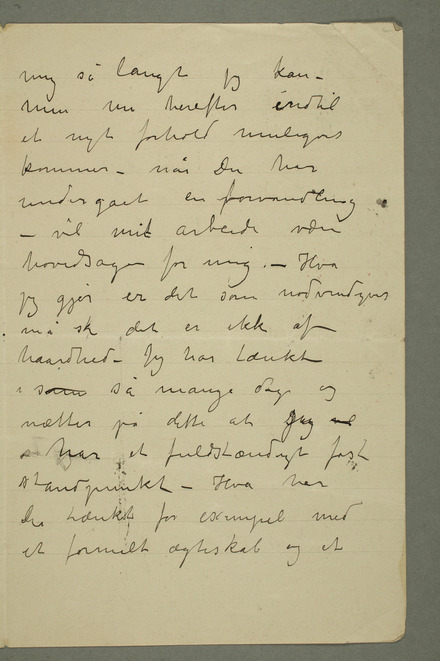 mig så langt jeg kan –
men nu herefter indtil
et nyt forhold muligens
kommer – når Du har
undergået en forvandling
– vil mit arbeide være
hovedsagen for mig. – Hva
jeg gjør er det som nødvendigvis
må ske det er ikke af
haardhed – Jeg har tænkt
i som så mange dage og
nætter på dette at jeg
har et fuldstændigt fast
standpunkt – Hva har
Du tænkt for exempel med
et formelt ægteskab og et